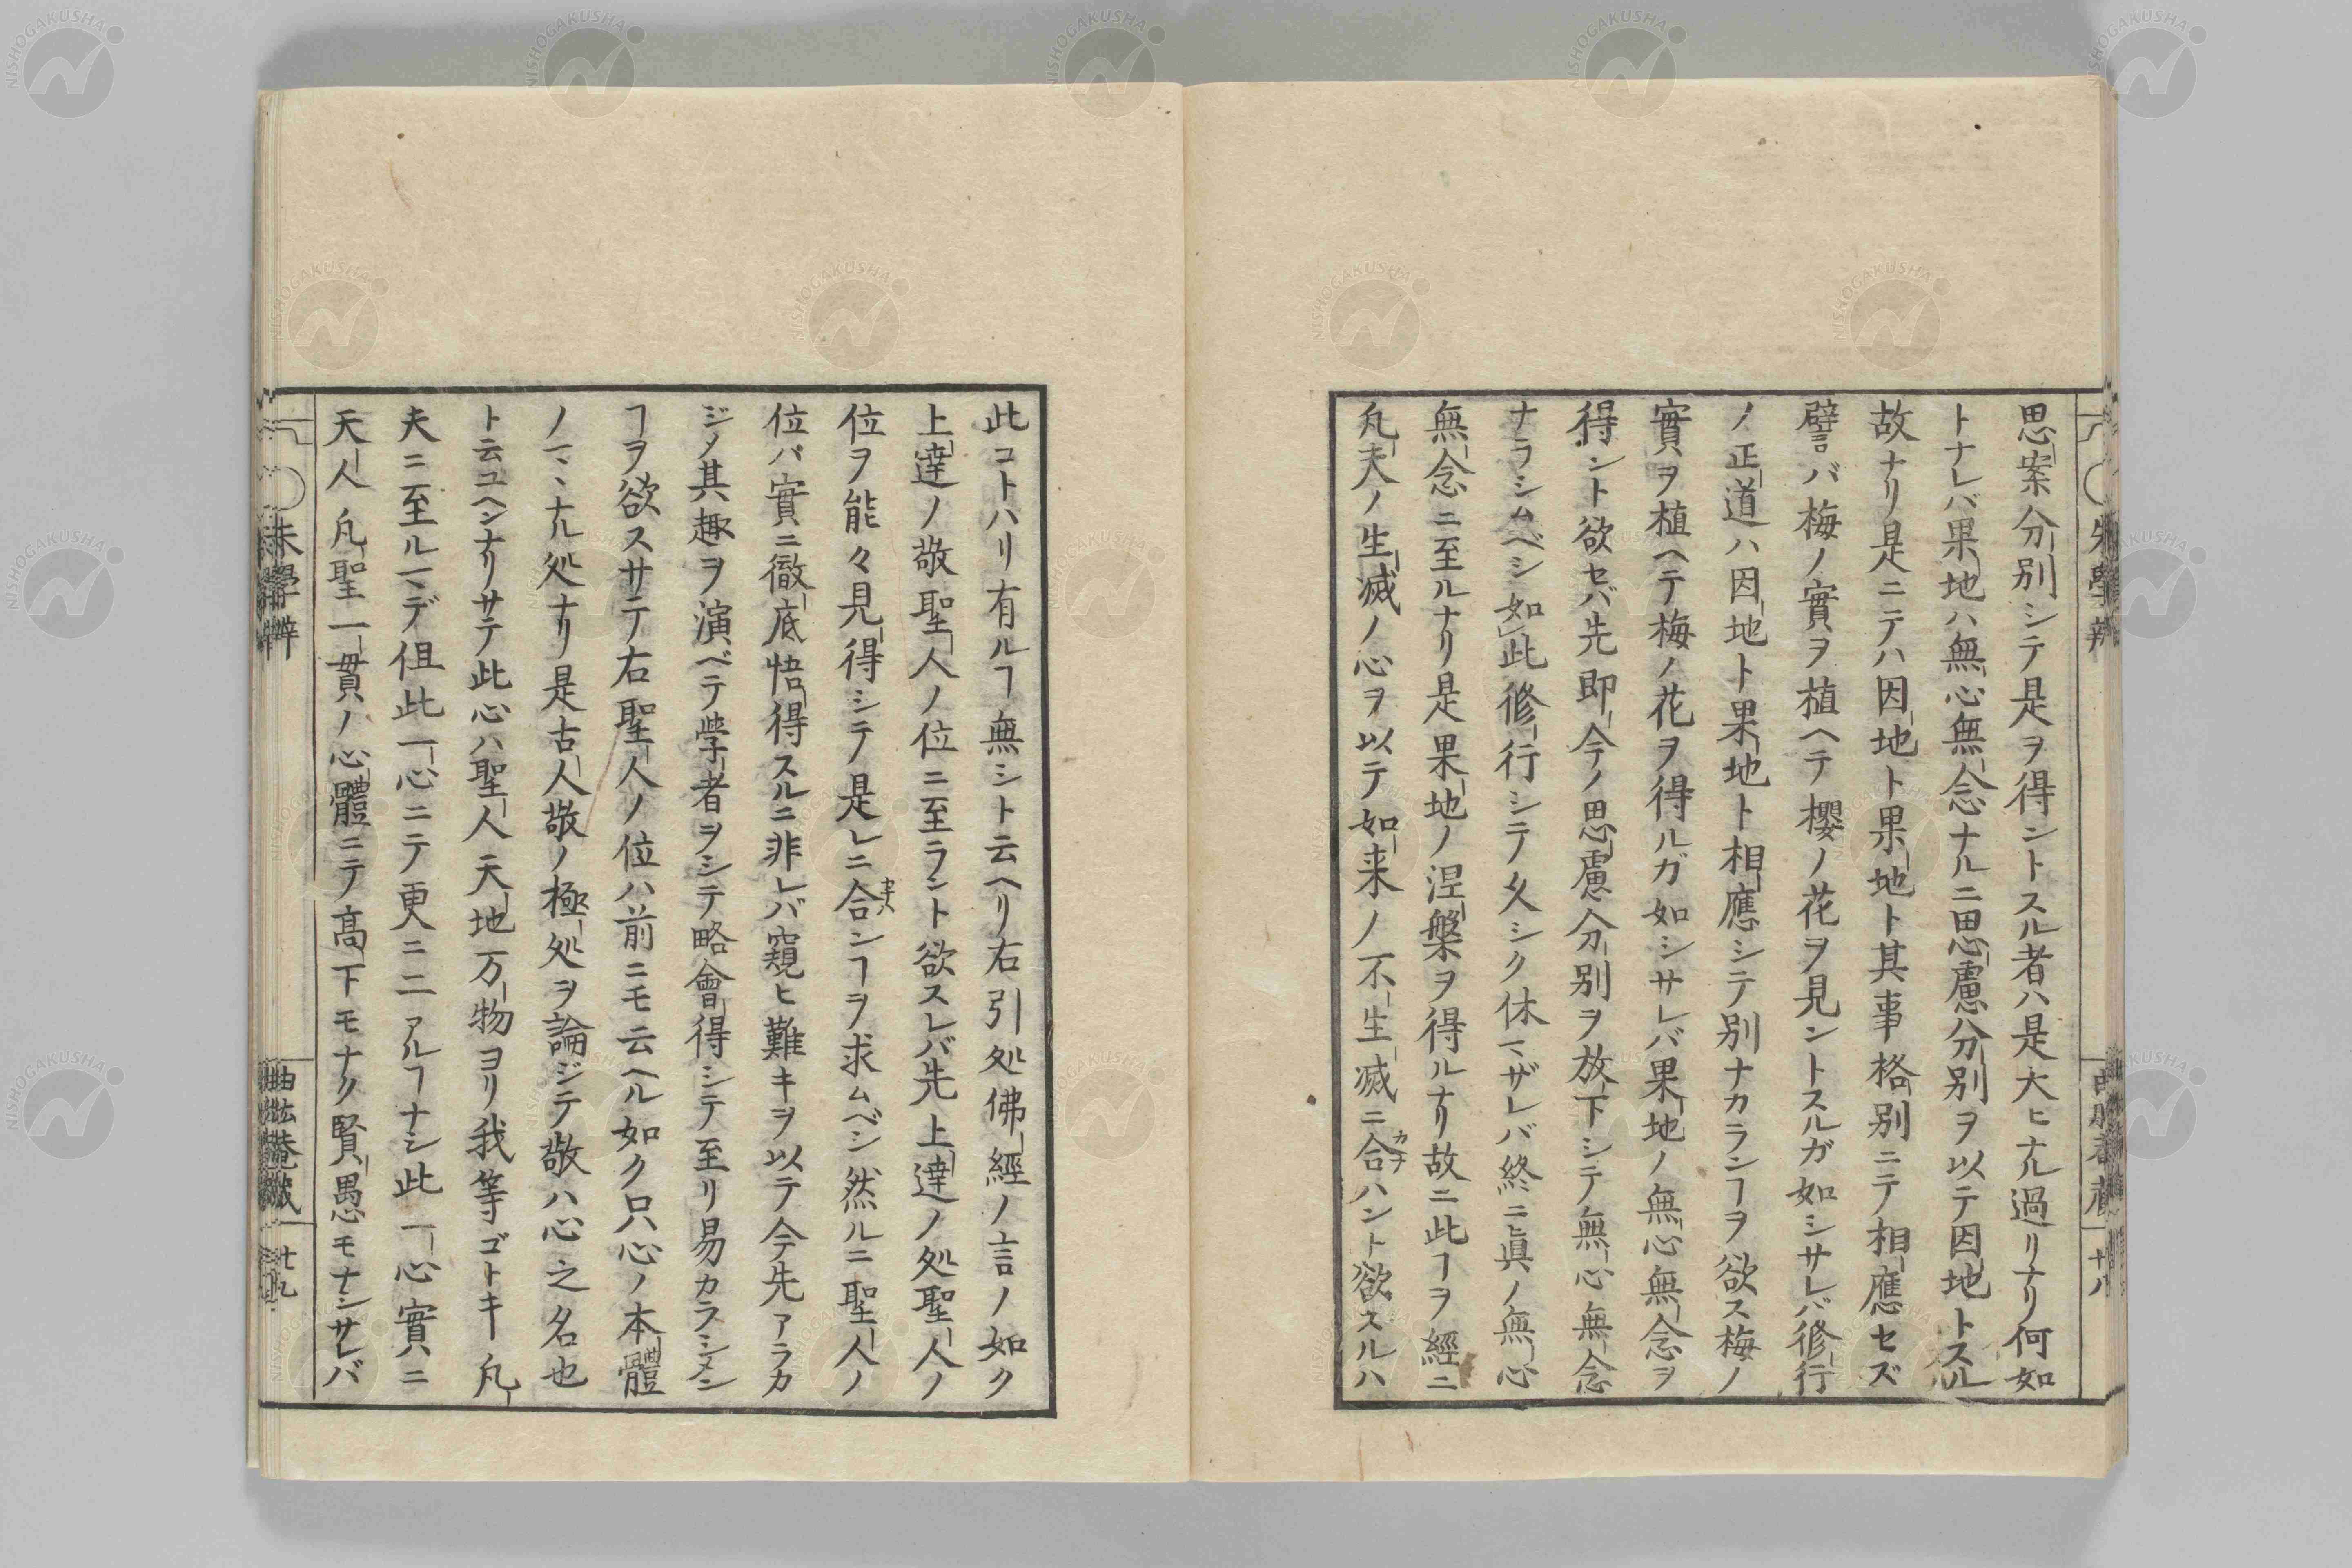 思案分別シテ是ヲ得ントスル者ハ是大ヒナル過リナリ何如
トナレバ果地ハ無心無念ナルニ思慮分別ヲ以テ因地トスル
故ナリ是ニテハ因地ト果地ト其事格別ニテ相應セズ
譬言バ梅ノ實ヲ植ヘテ櫻ノ花ヲ見ントスルガ如シサレバ修行
ノ正道ハ因地ト果地ト相應シテ別ナカランヿヲ欲ス梅ノ
實ヲ植ヘテ梅ノ花ヲ得ルガ如シサレバ果地ノ無心無念ヲ
得ント欲セバ先即今ノ思慮分別ヲ放下シテ無心無念
ナラシムベシ如此修行シテ久シク休マザレバ終ニ眞ノ無心
無念ニ至ルナリ是果地ノ涅槃ヲ得ルナリ故ニ此ヿヲ經ニ
凡夫ノ生滅ノ心ヲ以テ如来ノ不生滅ニ合ハント欲スルハ
カナ
此コトハリ有ルヿ無シト云ヘリ右引処佛經ノ言ノ如ク
上達ノ敬聖人ノ位ニ至ラント欲スレバ先上達ノ処聖人ノ
位ヲ能々見得シテ是レニ合ンヿヲ求ムベシ然ルニ聖人ノ
位パ實ニ徹底悟得スルニ非レバ窺ヒ難キヲ以テ今先アラカ
ジメ其趣ヲ演ベテ學者ヲシテ略會得シテ至リ易カラシメン
ヿヲ欲スサテ右聖人ノ位ハ前ニモ云ヘル如ク只心ノ本體
ノマヽナル処ナリ是古人敬ノ極処ヲ論ジテ敬ハ心之名也
ト云ユヘンナリサテ此心ハ聖人天地万物ヨリ我等ゴトキ凡
夫ニ至ルマデ但此一心ニテ更ニ二アルヿナシ此一心實ハニ
天人凡聖一貫ノ心體ニテ高下モナク賢愚モナシサレバ
朱學辨
廿九